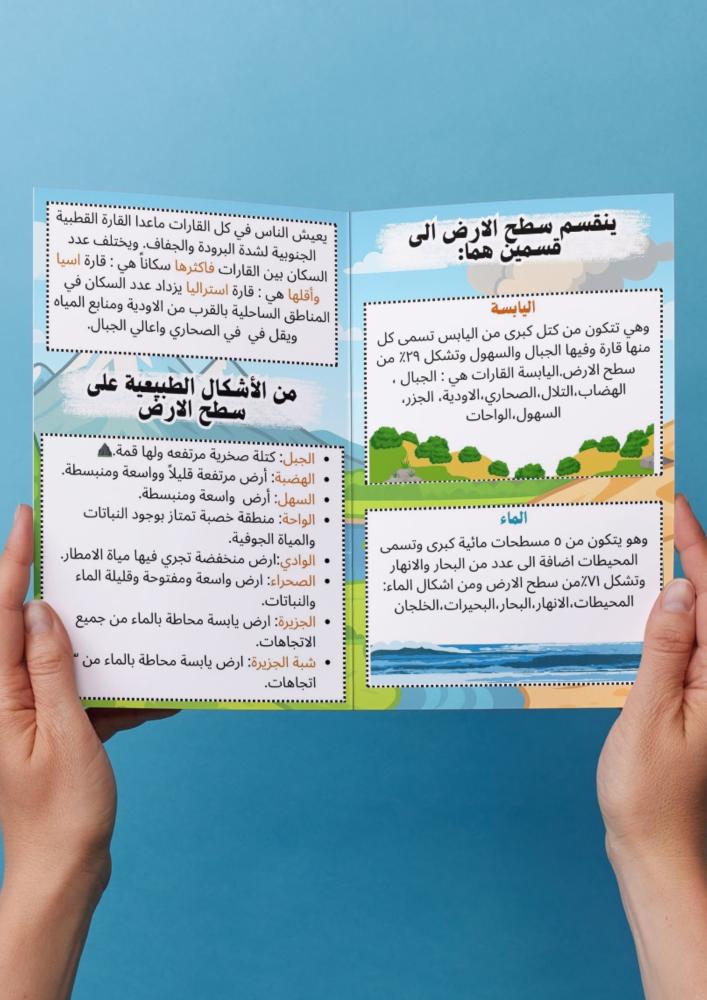 ينقسم سطح الارض الى
قسمين هما:
اليابسة
وهي تتكون من كتل كبرى من اليابس تسمى كل
منها قارة وفيها الجبال والسهول وتشكل ٢٩٪ من
سطح الارض.اليابسة القارات هي : الجبال ،
الهضاب،التلال،الصحاري،الاودية، الجزر،
السهول،الواحات
الماء
وهو يتكون من ٥ مسطحات مائية كبرى وتسمى
المحيطات اضافة الى عدد من البحار والانهار
وتشكل ٧١٪من سطح الارض ومن اشكال الماء:
المحيطات،الانهار،البحار،البحيرات،الخلجان
يعيش الناس في كل القارات ماعدا القارة القطبية
الجنوبية لشدة البرودة والجفاف. ويختلف عدد
السكان بين القارات فاكثرها سكاناً هي : قارة اسيا
وأقلها هي : قارة استراليا يزداد عدد السكان في
المناطق الساحلية بالقرب من الاودية ومنابع المياه
ويقل في في الصحاري واعالي الجبال.
من الأشكال الطبيعية على
سطح الارض
• الجبل: كتلة صخرية مرتفعه ولها قمة.
• الهضبة: أرض مرتفعة قليلاً وواسعة ومنبسطة.
• السهل: أرض واسعة ومنبسطة.
• الواحة: منطقة خصبة تمتاز بوجود النباتات
والمياة الجوفية.
• الوادي:ارض منخفضة تجري فيها مياة الامطار.
• الصحراء: ارض واسعة ومفتوحة وقليلة الماء
والنباتات.
• الجزيرة: ارض يابسة محاطة بالماء من جميع
الاتجاهات.
• شبة الجزيرة: ارض يابسة محاطة بالماء من ٣
اتجاهات.